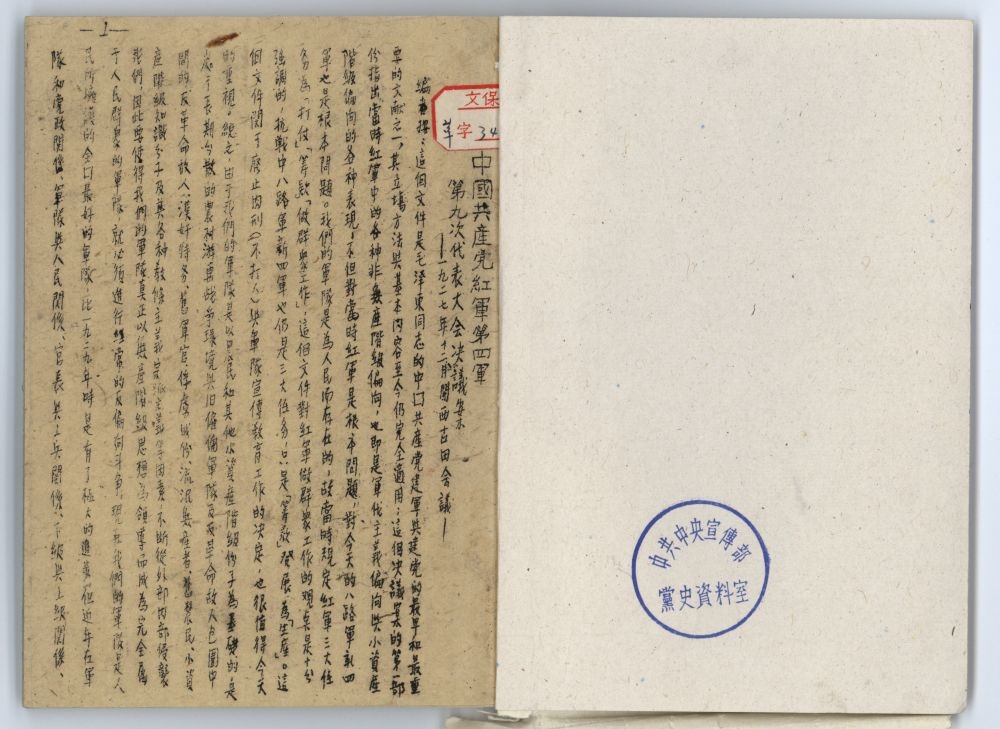 文保
革字34
中國共産党紅軍第四軍
第九次代表大会决議案
—一九二七年十二月閩西古田会議—
編者按：這個文件是毛泽東同志的中口共産党建軍與建党的最早和最重
要的文献之一，其立場方法與基本内容至今仍完全適用；這個决議案的第一部
份指出當時紅軍中的各种非無産階級偏向，也即是單纯軍事主義偏向與小資産
階級偏向的各种表現，不但對當時紅軍是根本問題，對今天的八路軍新四
軍也是根本問題。我們的軍隊是為人民而存在的，故當時規定紅軍三大任
务為「打仗」「筹款」「做群衆工作」，這個文件對紅軍做群衆工作的观點是十分
強調的，抗戰中八路軍新四軍也仍是三大任务，只是「筹款」發展為「生産」。這
個文件関于廢止肉刑（不打人）與軍隊宣傳教育工作的决定，也很值得今天
的重視。總之，由于我們的軍隊是以農民和其他小資産階級份子為基礎的，是
处于長期分散的農村游擊战争環境與旧僱傭軍隊及反革命敌人包圍中
間的，反革命敌人、漢奸特务、舊軍官俘虜成份、流氓無産者、舊農民、小資
産階級知識分子及其各种教條主義宗派主義等因素，不断從外部内部侵襲
我們，因此要使得我們的軍隊真正以無産階級思想為領導而成為完全属
于人民群衆的軍隊，就必須進行經常的反偏向斗争，現在我們的軍隊是人
民所擁護的全口最好的軍隊，比一九二九年時是有了極大的進步，但近年在軍
隊和党政関係、軍隊與人民関係、官長與士兵関係、下級與上級関係、
—1—
中共中央宣傳部
黨史資料室